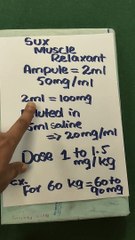 Sux
Muscle
Relaxant
Ampule = 2ml
50mg/ml
2ml = 100mg
luted in
5ml saline
=> 20mg/ml
Dose 1 to 1.5
mg/kg
ex.
For 60 kg = 60 to
90 mg